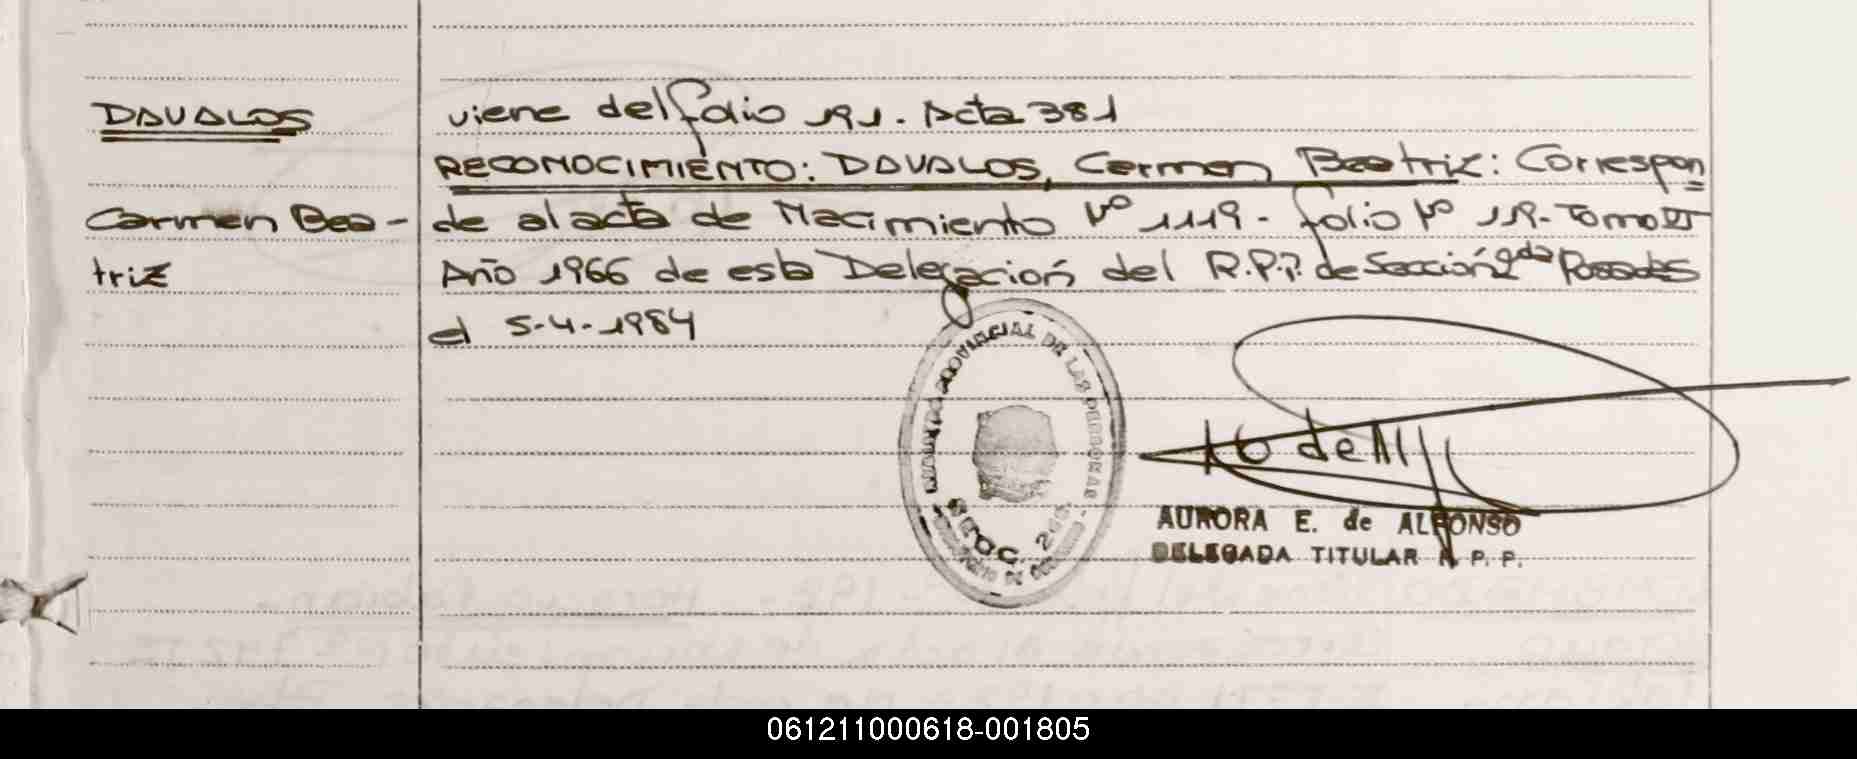 DAVALOS
Carmen Bea-
triz
viene del folio 191. Acta 381
RECONOCIMIENTO: DAVALOS, Carmen Beatriz: Correspon
de al acta de Nacimiento Nº 1119- folio Nº 119- Tomo VI
Año 1966 de esta Delegación del R.P.P. de Sección 2da Posadas
el 5-4-1984
REGISTRO PROVINCIAL DE LAS PERSONAS
SECC. 2da.
AURORA E. de ALFONSO
DELEGADA TITULAR R. P. P.
061211000618-001805